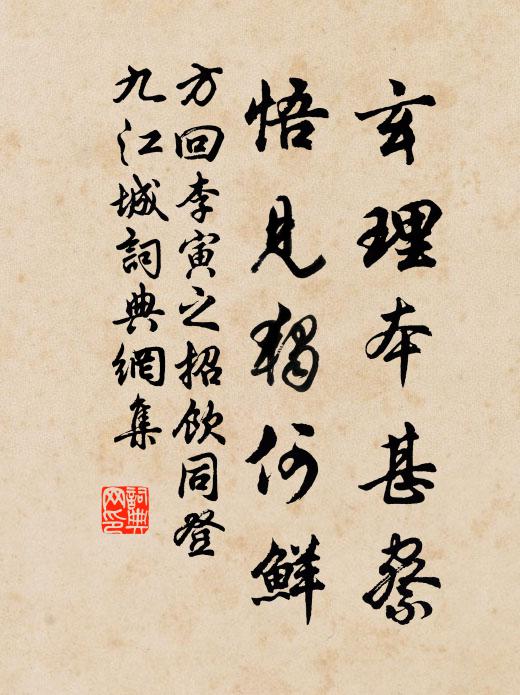 玄理本甚粲
悟見獨何鮮
方回李寅之招飲同登
九江城詞典網集
詞典
网印